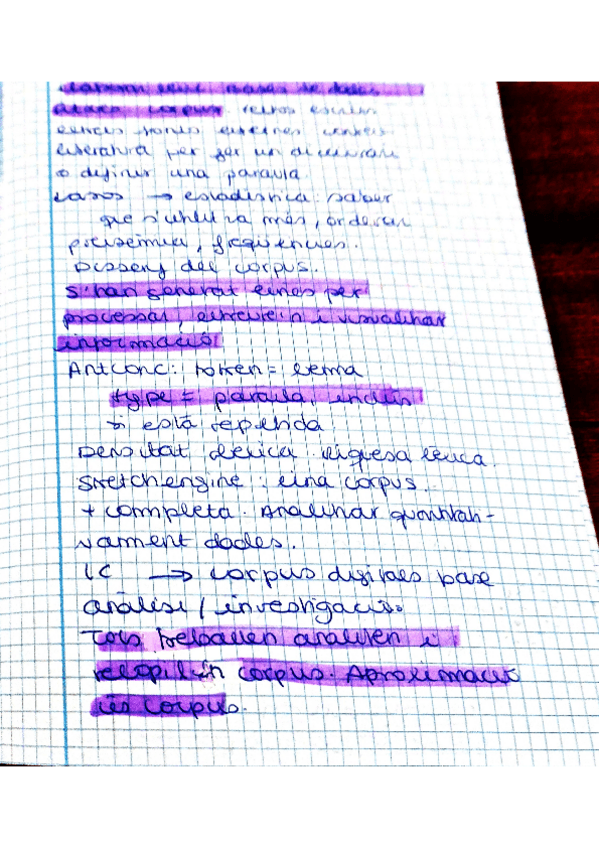 bases de dades
corpus. textos escrits
literatura per fer un diccionari
o definir una paraula
casos → estadística: saber
que s'utilitza més, ordenar
polisèmia, freqüències.
Disseny del corpus.
S'han generat eines per
processar, extreure'n i visualitzar
informació
Antconc: token = lema
type = paraula, inclús
si està repetida
Densitat lèxica. riquesa lèxica.
Sketchengine: eina corpus.
+ completa. Analitzar quantitati-
vament dades.
LC → corpus digitals base
anàlisi / investigació.
Tots treballen analitzen i
recopilen corpus. Aproximació
és corpus.